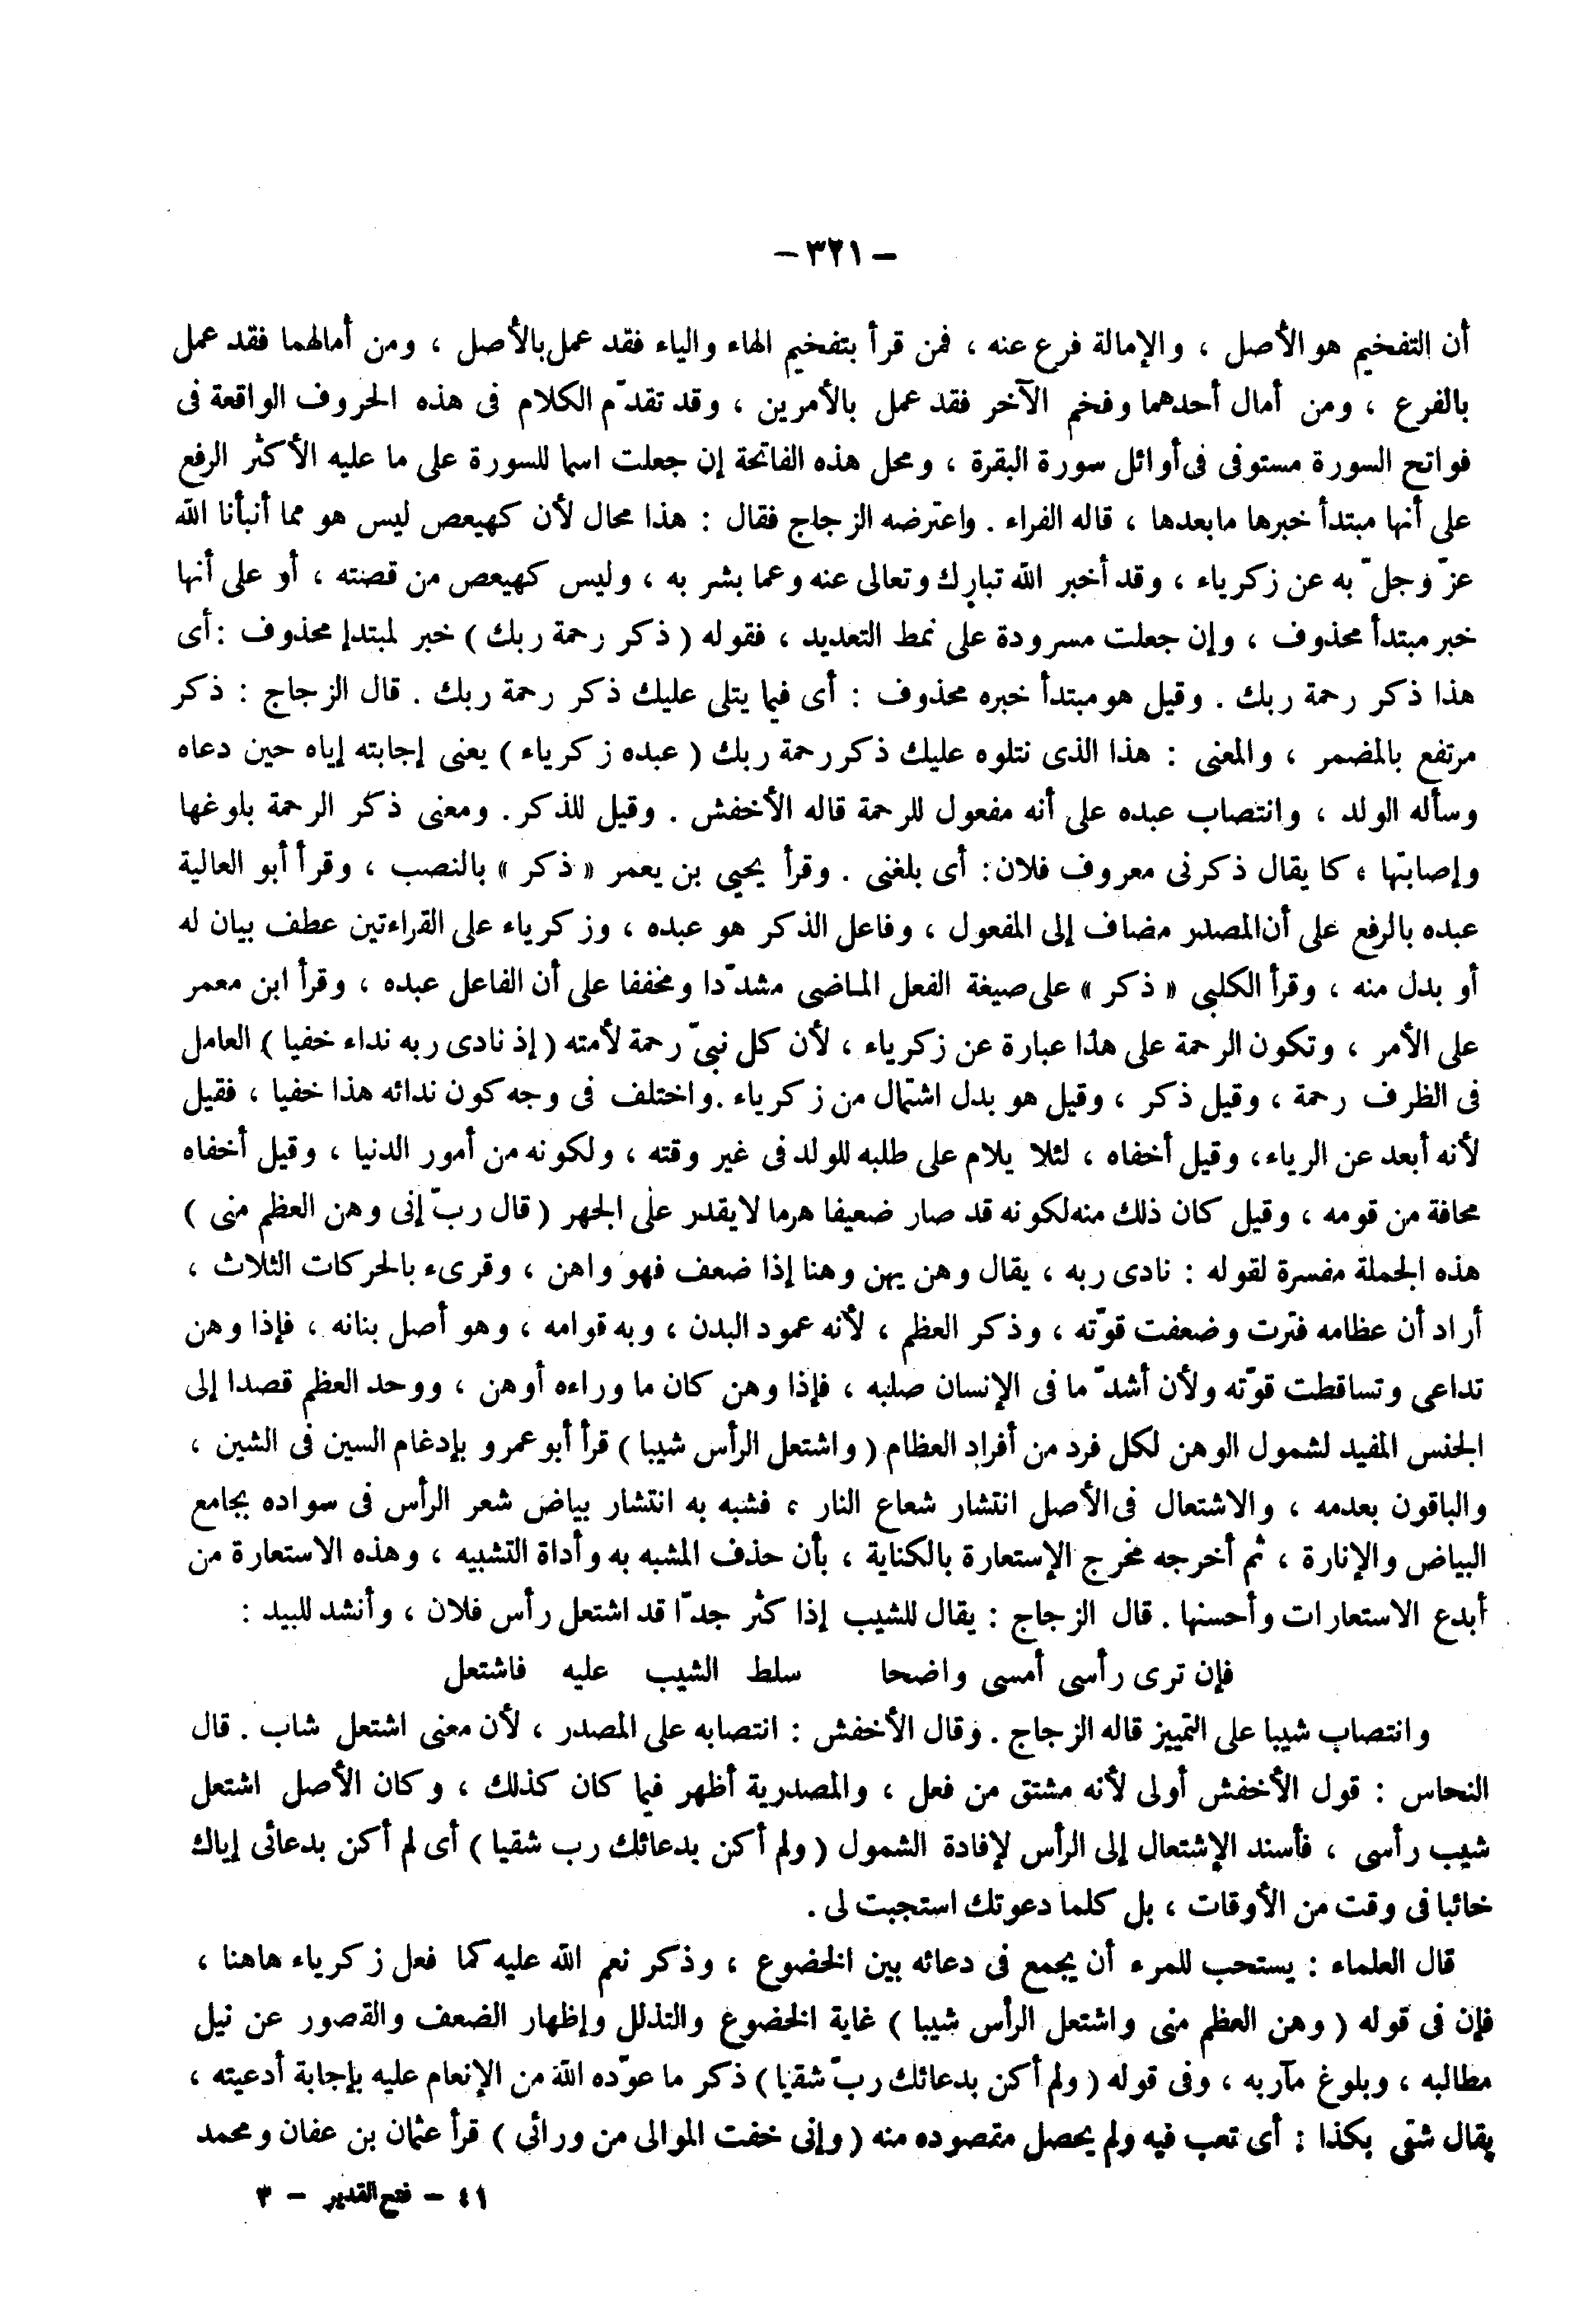 – ٣٢١ –
أن التفخيم هو الأصل ، والإمالة فرع عنه ، فمن قرأ بتفخيم الهاء والياء فقد عمل بالأصل ، ومن أمالهما فقد عمل
بالفرع ، ومن أمال أحدهما وفخم الآخر فقد عمل بالأمرين ، وقد تقدّم الكلام فى هذه الحروف الواقعة فى
فواتح السورة مستوفى فى أوائل سورة البقرة ، ومحل هذه الفاتحة إن جعلت اسما للسورة على ما عليه الأكثر الرفع
على أنها مبتدأ خبرها مابعدها ، قاله الفراء . واعترضه الزجاج فقال : هذا محال لأن كهيعص ليس هو مما أنبأنا الله
عزّ وجلّ به عن زكرياء ، وقد أخبر الله تبارك وتعالى عنه وعما بشر به ، وليس كهيعص من قصته ، أو على أنها
خبر مبتدأ محذوف ، وإن جعلت مسرودة على نمط التعديد ، فقوله ( ذكر رحمة ربك ) خبر لمبتدإ محذوف : أى
هذا ذكر رحمة ربك . وقيل هو مبتدأ خبره محذوف : أى فيما يتلى عليك ذكر رحمة ربك . قال الزجاج : ذكر
مرتفع بالمضمر ، والمعنى : هذا الذى نتلوه عليك ذكر رحمة ربك ( عبده زكرياء ) يعنى إجابته إياه حين دعاه
وسأله الولد ، وانتصاب عبده على أنه مفعول للرحمة قاله الأخفش . وقيل للذكر . ومعنى ذكر الرحمة بلوغها
وإصابتها ، كما يقال ذكرنى معروف فلان : أى بلغنى . وقرأ يحيى بن يعمر « ذكر » بالنصب ، وقرأ أبو العالية
عبده بالرفع على أن المصدر مضاف إلى المفعول ، وفاعل الذكر هو عبده ، وزكرياء على القراءتين عطف بيان له
أو بدل منه ، وقرأ الكلبى « ذكر » على صيغة الفعل الماضى مشدّدا ومخففا على أن الفاعل عبده ، وقرأ ابن معمر
على الأمر ، وتكون الرحمة على هذا عبارة عن زكرياء ، لأن كل نبىّ رحمة لأمته ( إذ نادى ربه نداء خفيا ) العامل
فى الظرف رحمة ، وقيل ذكر ، وقيل هو بدل اشتمال من زكرياء . واختلف فى وجه كون ندائه هذا خفيا ، فقيل
لأنه أبعد عن الرياء، وقيل أخفاه ، لئلا يلام على طلبه للولد فى غير وقته ، ولكونه من أمور الدنيا ، وقيل أخفاه
مخافة من قومه ، وقيل كان ذلك منه لكونه قد صار ضعيفا هرما لايقدر على الجهر ( قال ربّ إنى وهن العظم منى )
هذه الجملة مفسرة لقوله : نادى ربه ، يقال وهن يهن وهنا إذا ضعف فهو واهن ، وقرىء بالحركات الثلاث ،
أراد أن عظامه فترت وضعفت قوّته ، وذكر العظم ، لأنه عمود البدن ، وبه قوامه ، وهو أصل بنائه ، فإذا وهن
تداعى وتساقطت قوّته ولأن أشدّ ما فى الإنسان صلبه ، فإذا وهن كان ما وراءه أوهن ، ووحد العظم قصدا إلى
الجنس المفيد لشمول الوهن لكل فرد من أفراد العظام ( واشتعل الرأس شيبا ) قرأ أبو عمرو بإدغام السين فى الشين ،
والباقون بعدمه ، والاشتعال فى الأصل انتشار شعاع النار ، فشبه به انتشار بياض شعر الرأس فى سواده بجامع
البياض والإنارة ، ثم أخرجه مخرج الإستعارة بالكناية ، بأن حذف المشبه به وأداة التشبيه ، وهذه الاستعارة من
أبدع الاستعارات وأحسنها . قال الزجاج : يقال للشيب إذا كثر جدّا قد اشتعل رأس فلان ، وأنشد للبيد :
فإن ترى رأسى أمسى واضحا سلط الشيب عليه فاشتعل
وانتصاب شيبا على التمييز قاله الزجاج . وقال الأخفش : انتصابه على المصدر ، لأن معنى اشتعل شاب . قال
النحاس : قول الأخفش أولى لأنه مشتق من فعل ، والمصدرية أظهر فيما كان كذلك ، وكان الأصل اشتعل
شيب رأسى ، فأسند الإشتعال إلى الرأس لإفادة الشمول ( ولم أكن بدعائك رب شقيا ) أى لم أكن بدعائى إياك
خائبا فى وقت من الأوقات ، بل كلما دعوتك استجبت لى .
قال العلماء : يستحب للمرء أن يجمع فى دعائه بين الخضوع ، وذكر نعم الله عليه كما فعل زكرياء هاهنا ،
فإن فى قوله ( وهن العظم منى واشتعل الرأس شيبا ) غاية الخضوع والتذلل وإظهار الضعف والقصور عن نيل
مطالبه ، وبلوغ مآربه ، وفى قوله ( ولم أكن بدعائك ربّ شقيا ) ذكر ما عوّده الله من الإنعام عليه بإجابة أدعيته ،
يقال شقى بكذا : أى تعب فيه ولم يحصل مقصوده منه ( وإنى خفت الموالى من ورائى ) قرأ عثمان بن عفان ومحمد
٤١ – فتح القدير – ٣